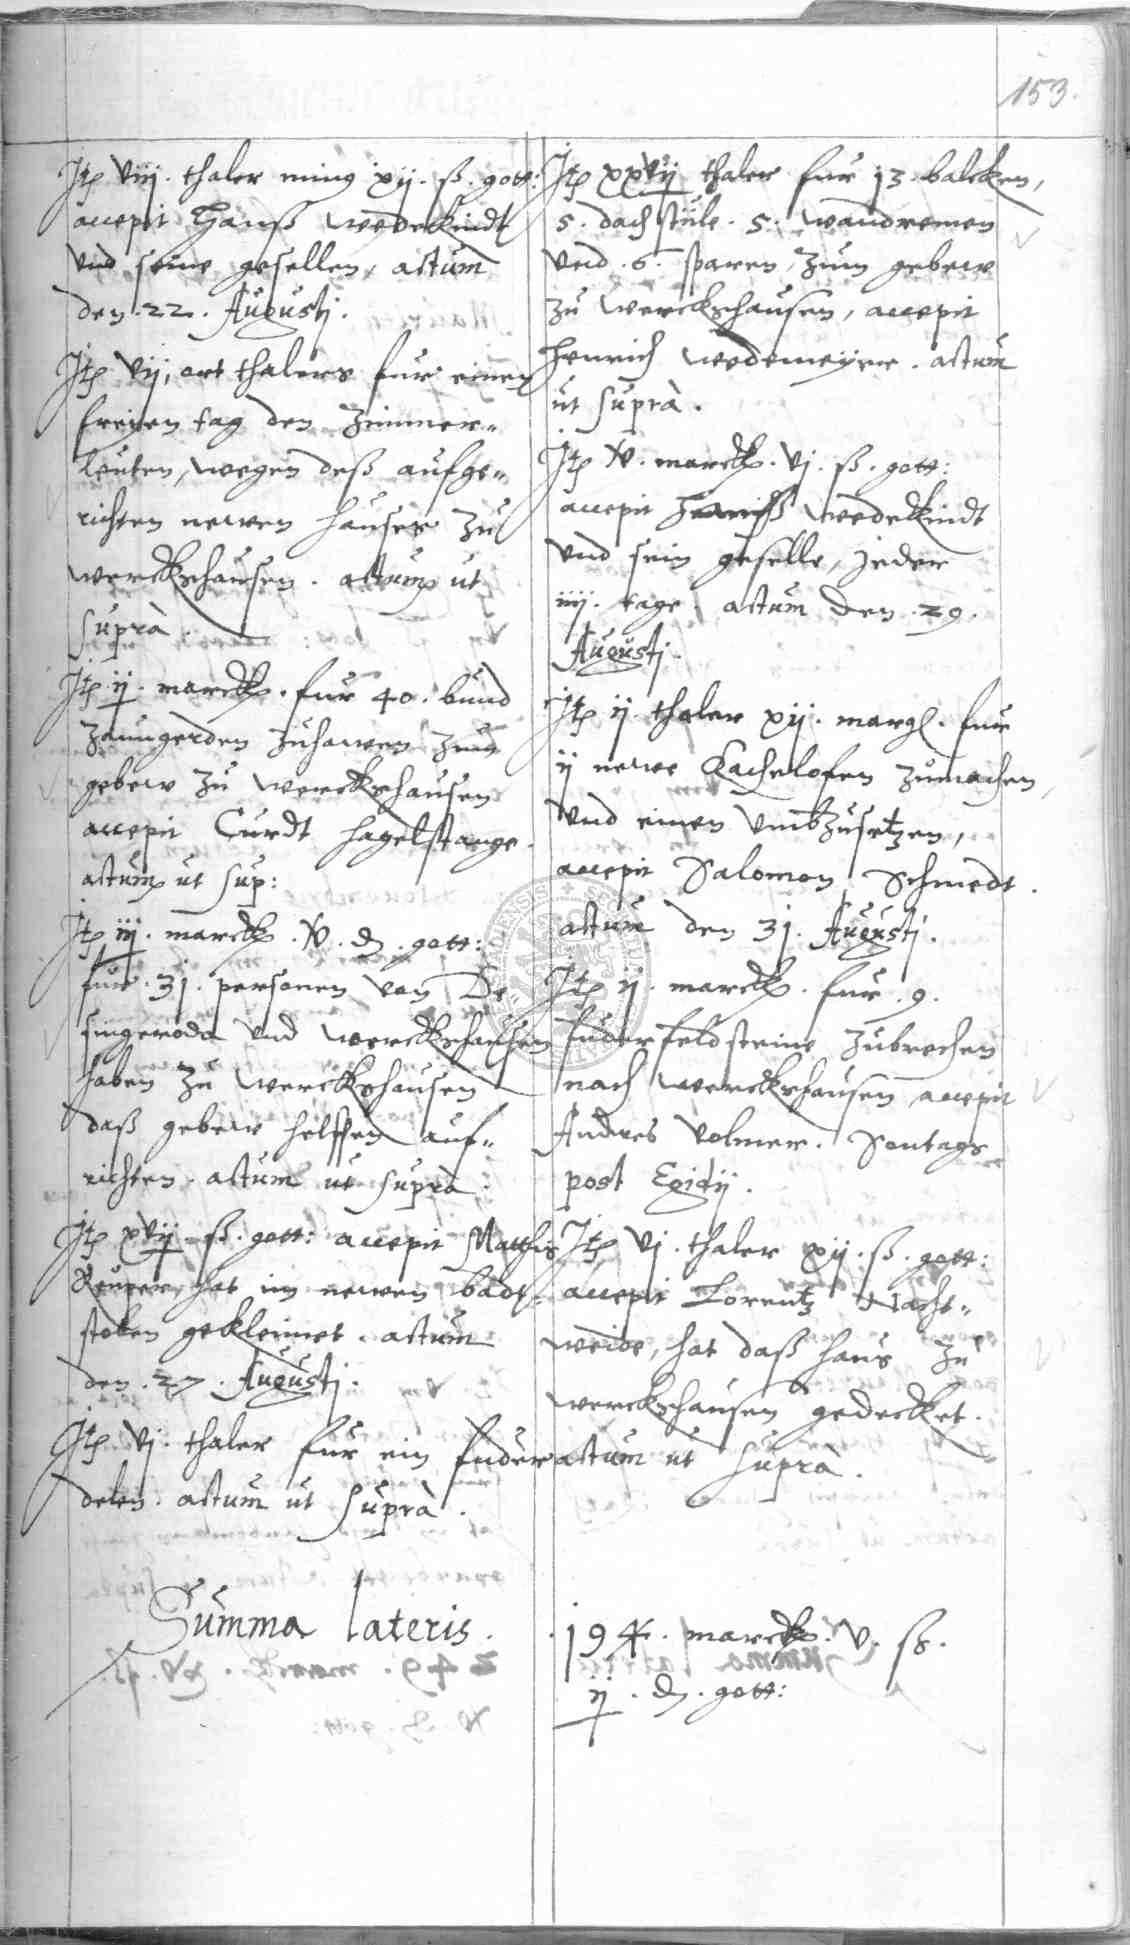 153.
Itp viij. thaler minꝰ xij. ß. gott:
accepit Hanß Wedekindt
vnd seine gesellen, actum
den .22. Augustj.
Itp vij, ort thalers fur einen
freyen tag den Zimmer-
leuten, wegen deß aufge-
richten newen hauses zu
Werckshausen. actum ut
suprà.
Itp ij. marck. fur 40. bund
Zaungerden zuhawen zum
gebew zu Werckshausen
accepit Curdt Hagelstange.
actum ut sup:
Itp iij. marck. v. d. gott:
fur. 31. personen von De
singeroda vnd Werckshausen
haben zu Werckshausen
daß gebew helffen auf-
richten. actum ut suprà.
Itp xvij. ß. gott: accepit Matthis
Reuper, hat im newen badt-
stoben gekleimet. actum
den .27. Augustj.
Itp vj. thaler fur ein fuder
delen. actum ut suprà.
Itp xxvij thaler fur 13. balcken,
5. dachstule. 5. wandremen
vnd .6. sparen, zum gebew
zu Werckshausen, accepit
Henrich Wedemeyer. actum
ut suprà.
Itp v. marck. vj. ß. gott:
accepit Hanß Wedekindt
vnd sein geselle, jeder
iiij. tage. actum den .29.
Augustj.
Itp ij. thaler xij. margl. fur
ij newe Kachelofen zumachen,
vnd einen vmbzusetzen,
accepit Salomon Schmedt.
actum den 31. Augustj.
Itp ij. marck. fur .9.
fuder feldsteine zubrechen
nach Werckshausen accepit
Andres Volmer. Sontags
post Egidij.
Itp vj. thaler xij. ß. gott:
accepit Lorentz Nacht-
weide, hat daß haus zu
Werckshausen gedecket.
actum ut suprà.
Summa lateris.
194. marck. v. ß.
ij. d. gott: